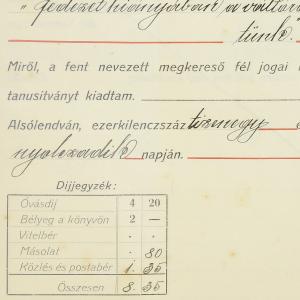 " fedezet hiányában a váltóra
tünk.
Miről, a fent nevezett megkereső fél jogai
tanusítványt kiadtam.
Alsólendván, ezerkilenczszáz tizenegy
nyolczadik napján.
Dijjegyzék:
Óvásdíj 4 20
Bélyeg a könyvön 2 —
Vitelbér . .
Másolat . 80
Közlés és postabér 1. 35
Összesen 8. 35